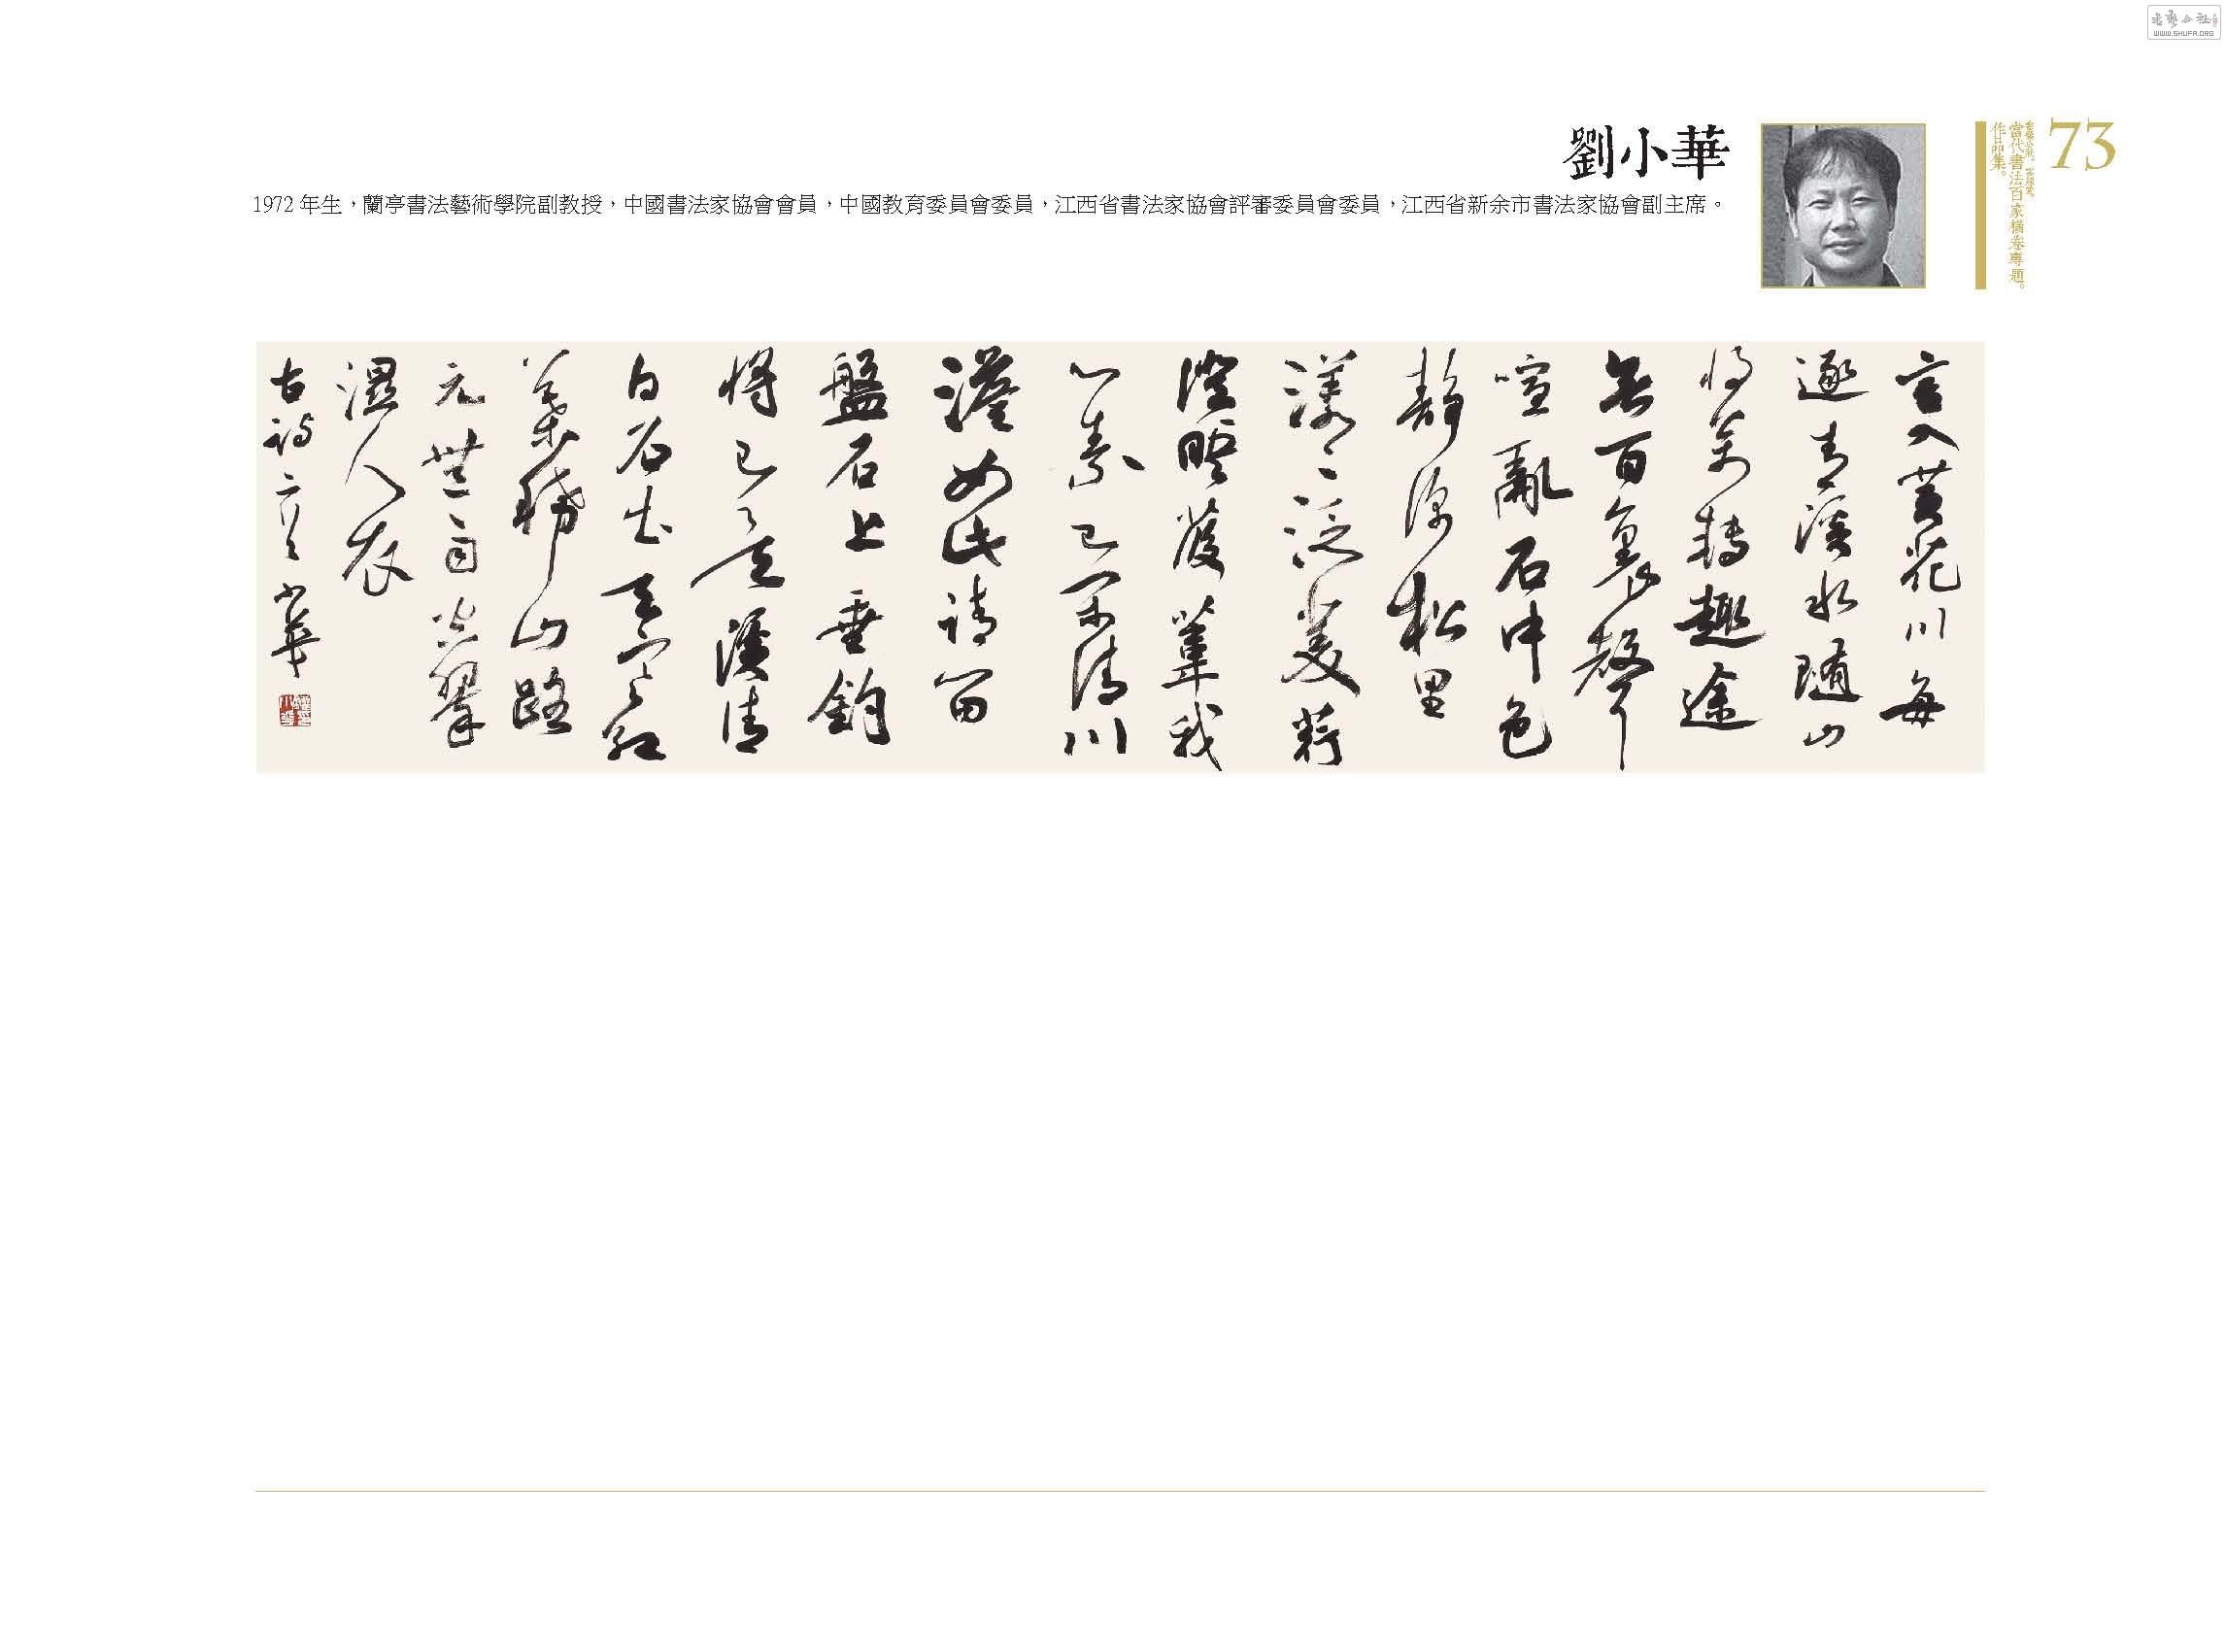 書藝公社
WWW.SHUFA.ORG
73
當代書法百家橫卷專題。
作品集。
劉小華
1972 年生，蘭亭書法藝術學院副教授，中國書法家協會會員，中國教育委員會委員，江西省書法家協會評審委員會委員，江西省新余市書法家協會副主席。
言入黃花川每
逐青溪水隨山
將萬轉趣途
無百裏聲
喧亂石中色
靜深松里
漾〻泛菱荇
澄映葭葦我
心素已閑清川
澹如此請留
盤石上垂釣
將已矣溪清
白石出天寒紅
葉稀山路
元無雨空翠
濕人衣
古詩二首 小華